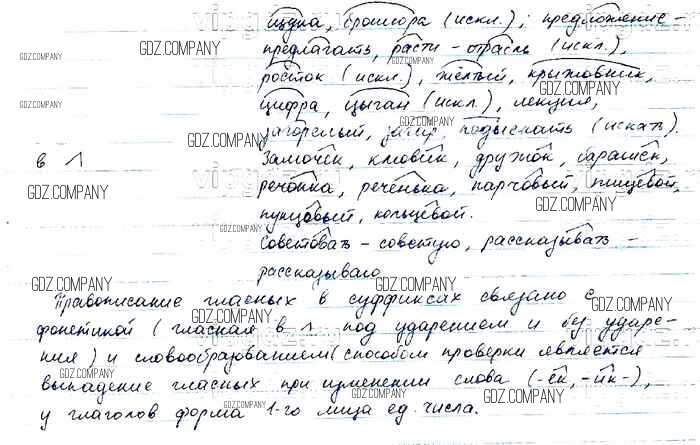 щука, брошюра (искл.); предложение –
предлагать, расти – отрасль (искл.),
росток (искл.), жёлтый, крыжовник,
цифра, цыган (искл.), лекция,
загорелый, загар, подыскать (искать).
в ^ Замочек, ключик, дружок, барашек,
речонка, реченька, парчовый, пищевой,
пунцовый, кольцевой.
Советовать – советую, рассказывать –
рассказываю
Правописание гласных в суффиксах связано с
фонетикой (гласная в ^ под ударением и без ударе-
ния) и словообразованием (способом проверки является
выпадение гласных при изменении слова (-ек, -ик-),
у глаголов форма 1-го лица ед. числа.